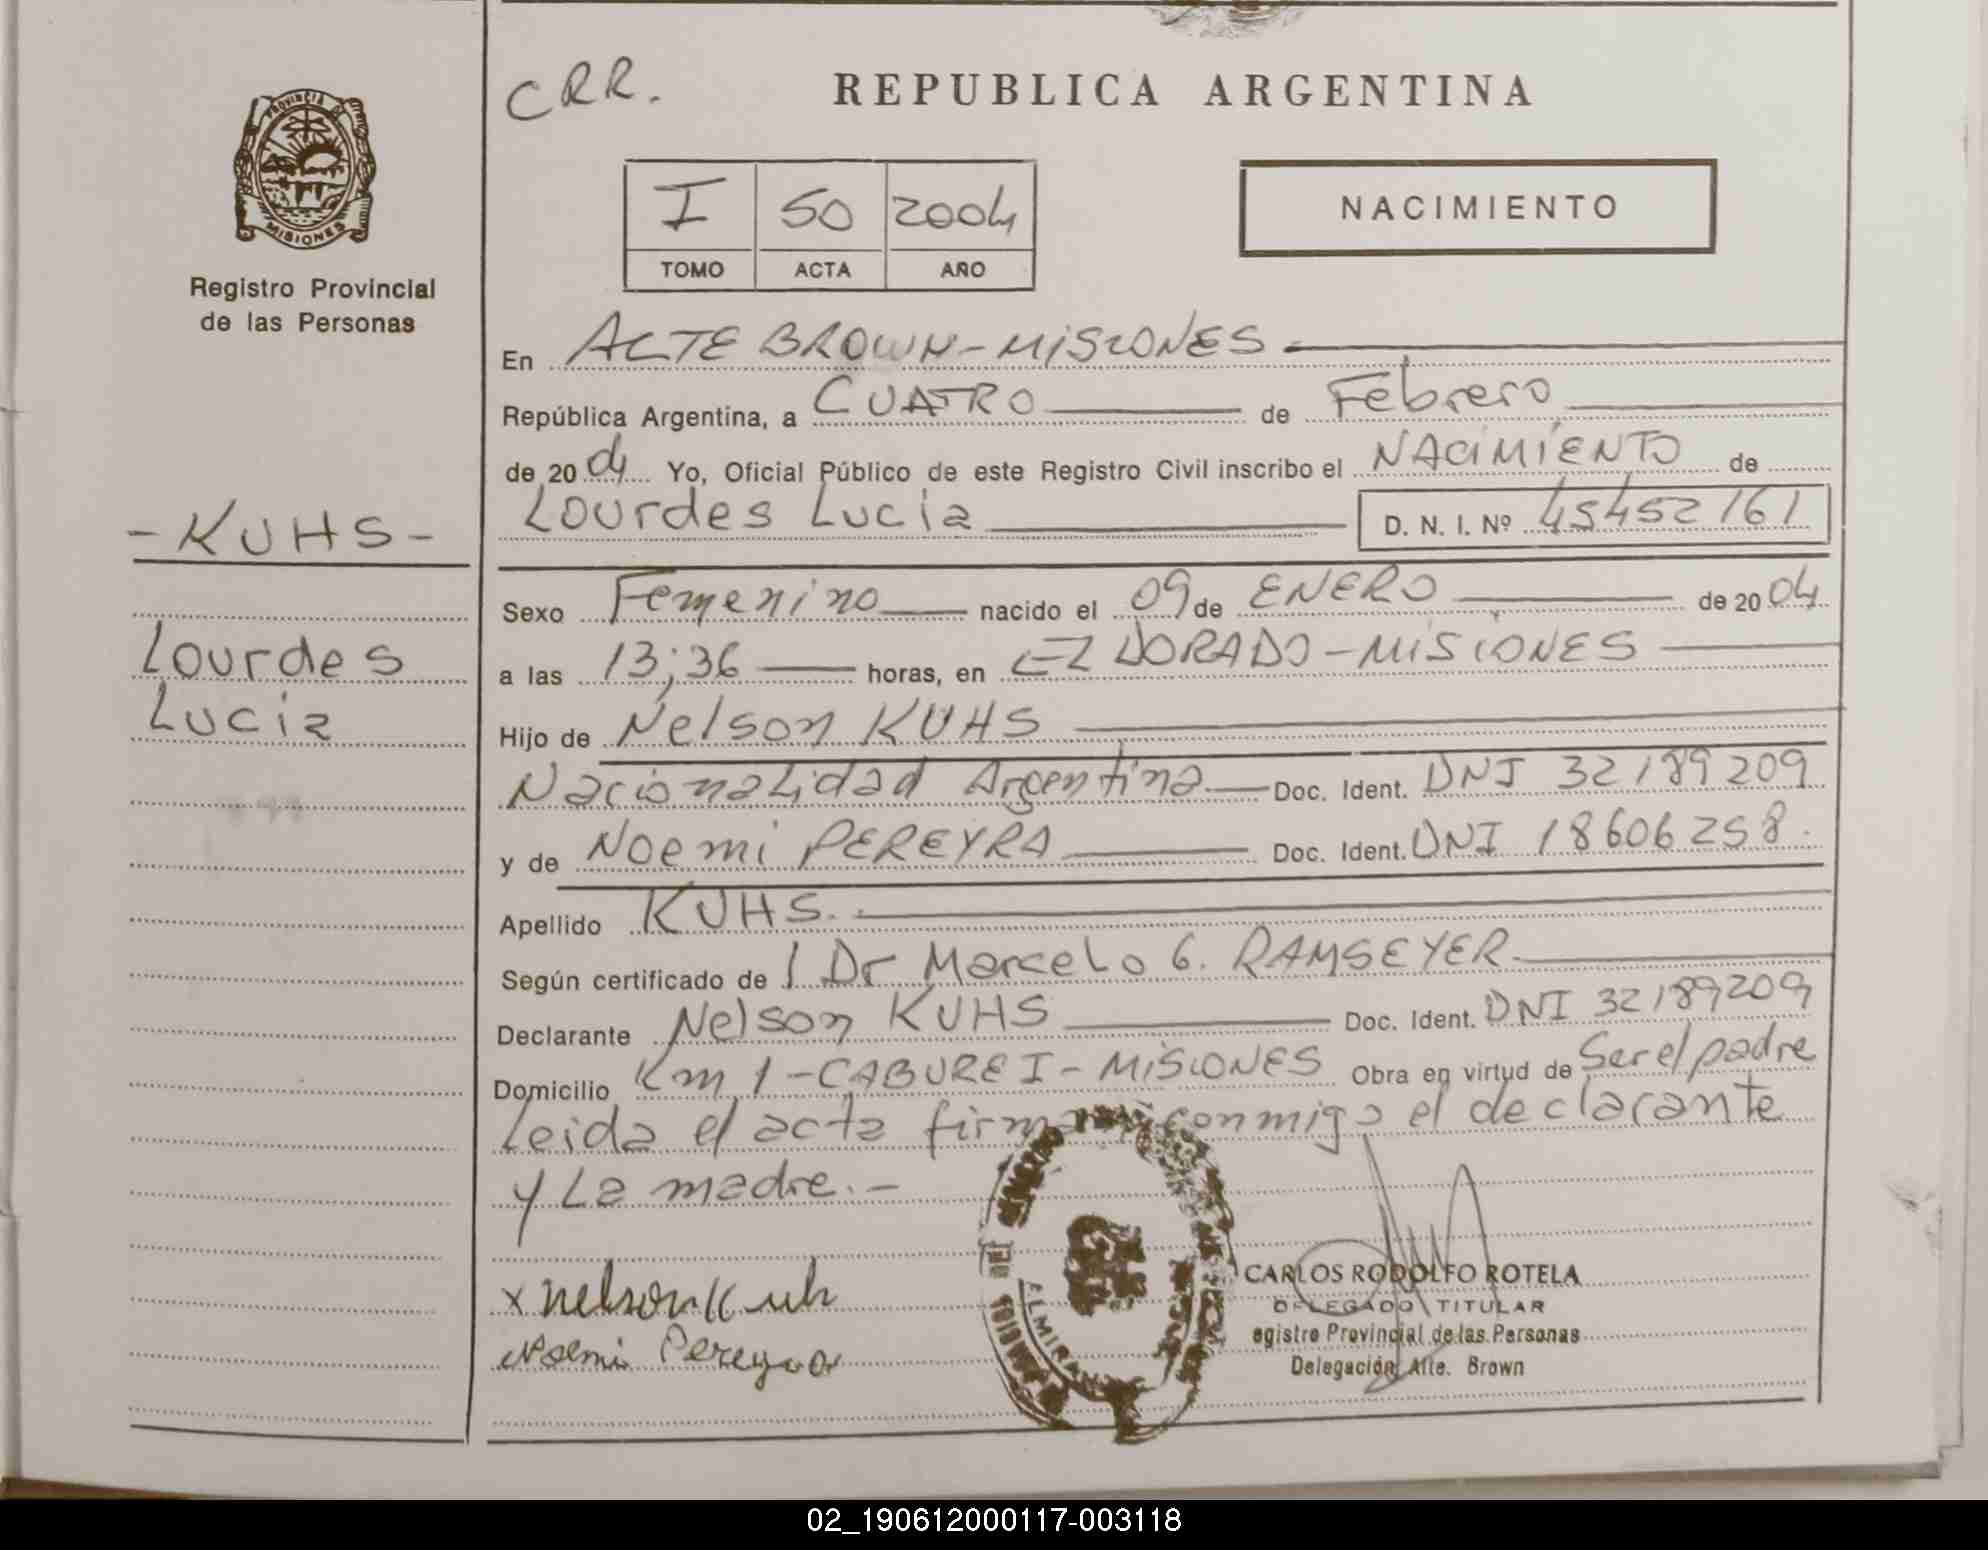 PROVINCIA DE
MISIONES
Registro Provincial
de las Personas
- KUHS -
Lourdes
Lucia
CRR.
REPUBLICA ARGENTINA
I 50 2004
TOMO ACTA AÑO
NACIMIENTO
En ALTE BROWN - MISIONES
República Argentina, a CUATRO de Febrero
de 2004 Yo, Oficial Público de este Registro Civil inscribo el NACIMIENTO de
Lourdes Lucia D. N. I. Nº 45452161
Sexo Femenino nacido el 09 de ENERO de 2004
a las 13;36 horas, en ELDORADO - MISIONES
Hijo de Nelson KUHS
Nacionalidad Argentina Doc. Ident. DNI 32189209
y de Noemi PEREYRA Doc. Ident. DNI 18606258.
Apellido KUHS.
Según certificado de / Dr Marcelo G. RAMSEYER
Declarante Nelson KUHS Doc. Ident. DNI 32189209
Domicilio Km 1 - CABUREI - MISIONES Obra en virtud de Ser el padre
Leida el acta firman conmigo el declarante
y La madre. -
x nelson Kuh
Noemi Pereyra
ALMIRAN
CARLOS RODOLFO ROTELA
DELEGADO TITULAR
egistro Provincial de las Personas
Delegación Alte. Brown
02_190612000117-003118